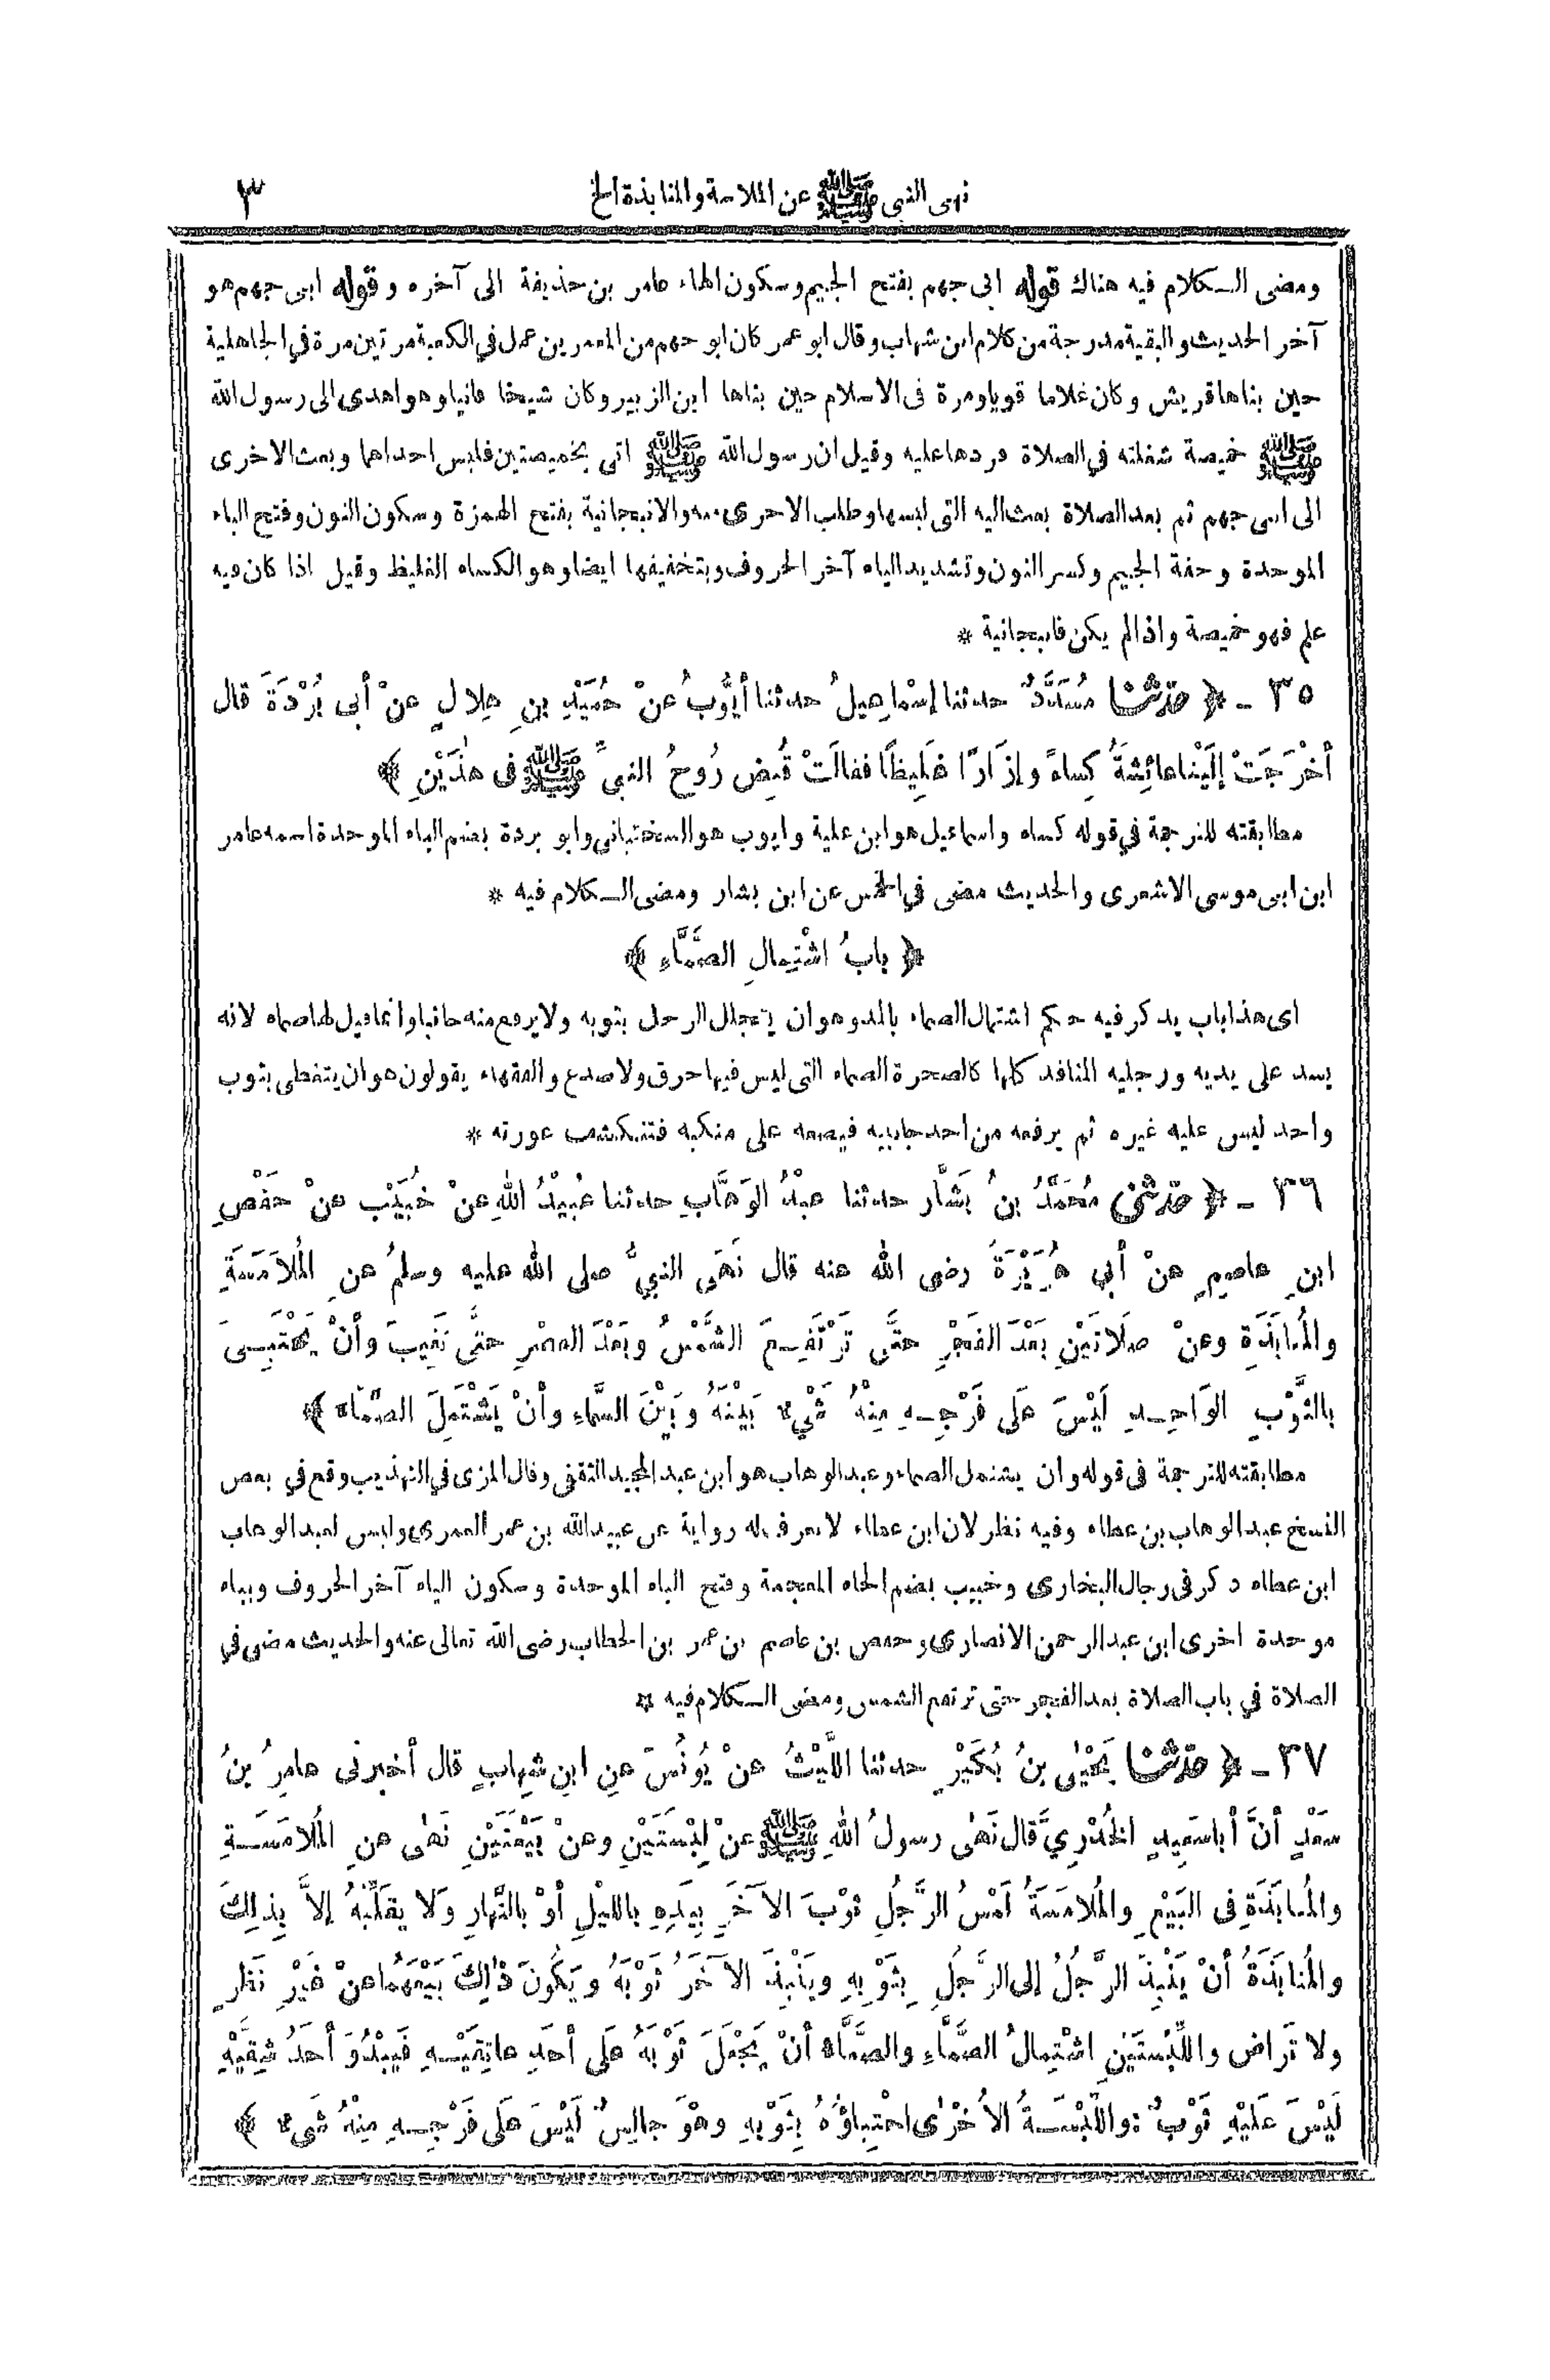 نهى النبي ﷺ عن الملامسة والمنابذة الخ ٣
ومضى الكلام فيه هناك قوله ابى جهم بفتح الجيم وسكون الهاء عامر بن حذيفة الى آخره وقوله ابى جهم هو
آخر الحديث والبقية مدرجة من كلام ابن شهاب وقال ابو عمر كان ابو جهم من المعمرين عمل في الكعبة مرتين مرة في الجاهلية
حين بناها قريش وكان غلاما قويا ومرة فى الاسلام حين بناها ابن الزبير وكان شيخا فانيا وهو اهدى الى رسول الله
ﷺ خميصة شغلته في الصلاة فردها عليه وقيل ان رسول الله ﷺ اتى بخميصتين فلبس احداهما وبعث الاخرى
الى ابى جهم ثم بعد الصلاة بعث اليه التى لبسها وطلب الاخرى منه والانبجانية بفتح الهمزة وسكون النون وفتح الباء
الموحدة وخفة الجيم وكسر النون وتشديد الياء آخر الحروف وبتخفيفها ايضا وهو الكساء الغليظ وقيل اذا كان فيه
علم فهو خميصة واذا لم يكن فانبجانية *
٣٥ - ﴿ حدثنا مُسَدَّدٌ حدثنا إسْماعِيلُ حدثنا أيُّوبُ عنْ حُمَيْدِ بنِ هِلالٍ عنْ أبى بُرْدَةَ قال
أخْرَجَتْ إلَيْنا عائِشَةُ كِساءً وإزَارًا غَلِيظًا فقالَتْ قُبِضَ رُوحُ النبيِّ ﷺ فى هذَيْنِ ﴾
مطابقته للترجمة في قوله كساء واسماعيل هو ابن علية وايوب هو السختياني وابو بردة بضم الباء الموحدة اسمه عامر
ابن ابى موسى الاشعرى والحديث مضى في الخمس عن ابن بشار ومضى الكلام فيه *
﴿ بابُ اشْتِمالِ الصَّمَّاءِ ﴾
اى هذا باب يذكر فيه حكم اشتمال الصماء بالمد وهو ان يتجلل الرجل بثوبه ولا يرفع منه جانبا وانما قيل لها صماء لانه
يسد على يديه ورجليه المنافذ كلها كالصخرة الصماء التى ليس فيها خرق ولا صدع والفقهاء يقولون هو ان يتغطى بثوب
واحد ليس عليه غيره ثم يرفعه من احد جانبيه فيضعه على منكبه فتنكشف عورته *
٣٦ - ﴿ حدثنى مُحَمَّدُ بنُ بَشَّارٍ حدثنا عبْدُ الوَهَّابِ حدثنا عُبَيْدُ اللهِ عنْ خُبَيْبٍ عنْ حَفْصِ
ابنِ عاصِمٍ عنْ أبي هُرَيْرَةَ رضى الله عنه قال نَهَى النبيُّ صلى الله عليه وسلمُ عنِ المُلاَمَسَةِ
والمُنابَذَةِ وعنْ صلاتَيْنِ بَعْدَ الفَجْرِ حتَّى تَرْتَفِعَ الشَّمْسُ وبَعْدَ العصْرِ حتَّى تَغِيبَ وأنْ يَحْتَبِىَ
بالثَّوْبِ الوَاحِدِ لَيْسَ علَى فَرْجِهِ مِنْهُ شَيْءٌ بَيْنَهُ وبَيْنَ السَّماءِ وأنْ يَشْتَمِلَ الصَّمَّاءَ ﴾
مطابقته للترجمة فى قوله وان يشتمل الصماء وعبد الوهاب هو ابن عبد المجيد الثقفى وقال المزى في التهذيب وقع في بعض
النسخ عبد الوهاب بن عطاء وفيه نظر لان ابن عطاء لا يعرف له رواية عن عبيد الله بن عمر العمرى وليس لعبد الوهاب
ابن عطاء ذكر فى رجال البخارى وخبيب بضم الخاء المعجمة وفتح الباء الموحدة وسكون الياء آخر الحروف وبباء
موحدة اخرى ابن عبد الرحمن الانصارى وحفص بن عاصم بن عمر بن الخطاب رضى الله تعالى عنه والحديث مضى في
الصلاة في باب الصلاة بعد الفجر حتى ترتفع الشمس ومضى الكلام فيه *
٣٧ - ﴿ حدثنا يَحْيَى بنُ بُكَيْرٍ حدثنا اللَّيْثُ عنْ يُونُسَ عنِ ابنِ شِهابٍ قال أخبرنى عامِرُ بنُ
سَعْدٍ أنَّ أبا سَعِيدٍ الخُدْرِيَّ قال نَهَى رسولُ اللهِ ﷺ عنْ لِبْسَتَيْنِ وعنْ بَيْعَتَيْنِ نَهَى عنِ المُلامَسَةِ
والمُنابَذَةِ فى البَيْعِ والمُلامَسَةُ لَمْسُ الرَّجُلِ ثوْبَ الآخَرِ بِيَدِهِ باللَّيْلِ أوْ بالنَّهارِ ولا يقَلِّبُهُ إلاَّ بِذلِكَ
والمُنابَذَةُ أنْ يَنْبِذَ الرَّجُلُ إلى الرَّجُلِ بِثَوْبِهِ ويَنْبِذَ الآخَرُ ثَوْبَهُ ويَكُونَ ذلِكَ بَيْعَهُما عنْ غَيْرِ نَظَرٍ
ولا تَرَاضٍ واللِّبْستَيْنِ اشْتِمالُ الصَّمَّاءِ والصَّمَّاءُ أنْ يَجْعَلَ ثَوْبَهُ علَى أحَدِ عاتِقَيْهِ فَيَبْدُوَ أحَدُ شِقَّيْهِ
لَيْسَ عَلَيْهِ ثَوْبٌ واللِّبْسَةُ الأُخْرَى احْتِباؤُهُ بِثَوْبِهِ وهْوَ جالِسٌ لَيْسَ علَى فَرْجِهِ مِنْهُ شَىءٌ ﴾